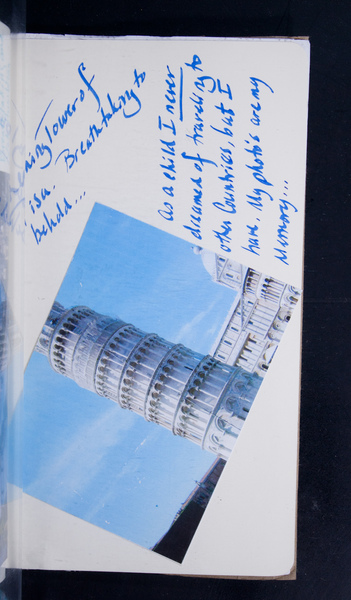 Leaning Tower of
Pisa. Breathtaking to
behold...
As a child I never
dreamed of traveling to
other Countries, but I
have. My photo's are my
Memory...